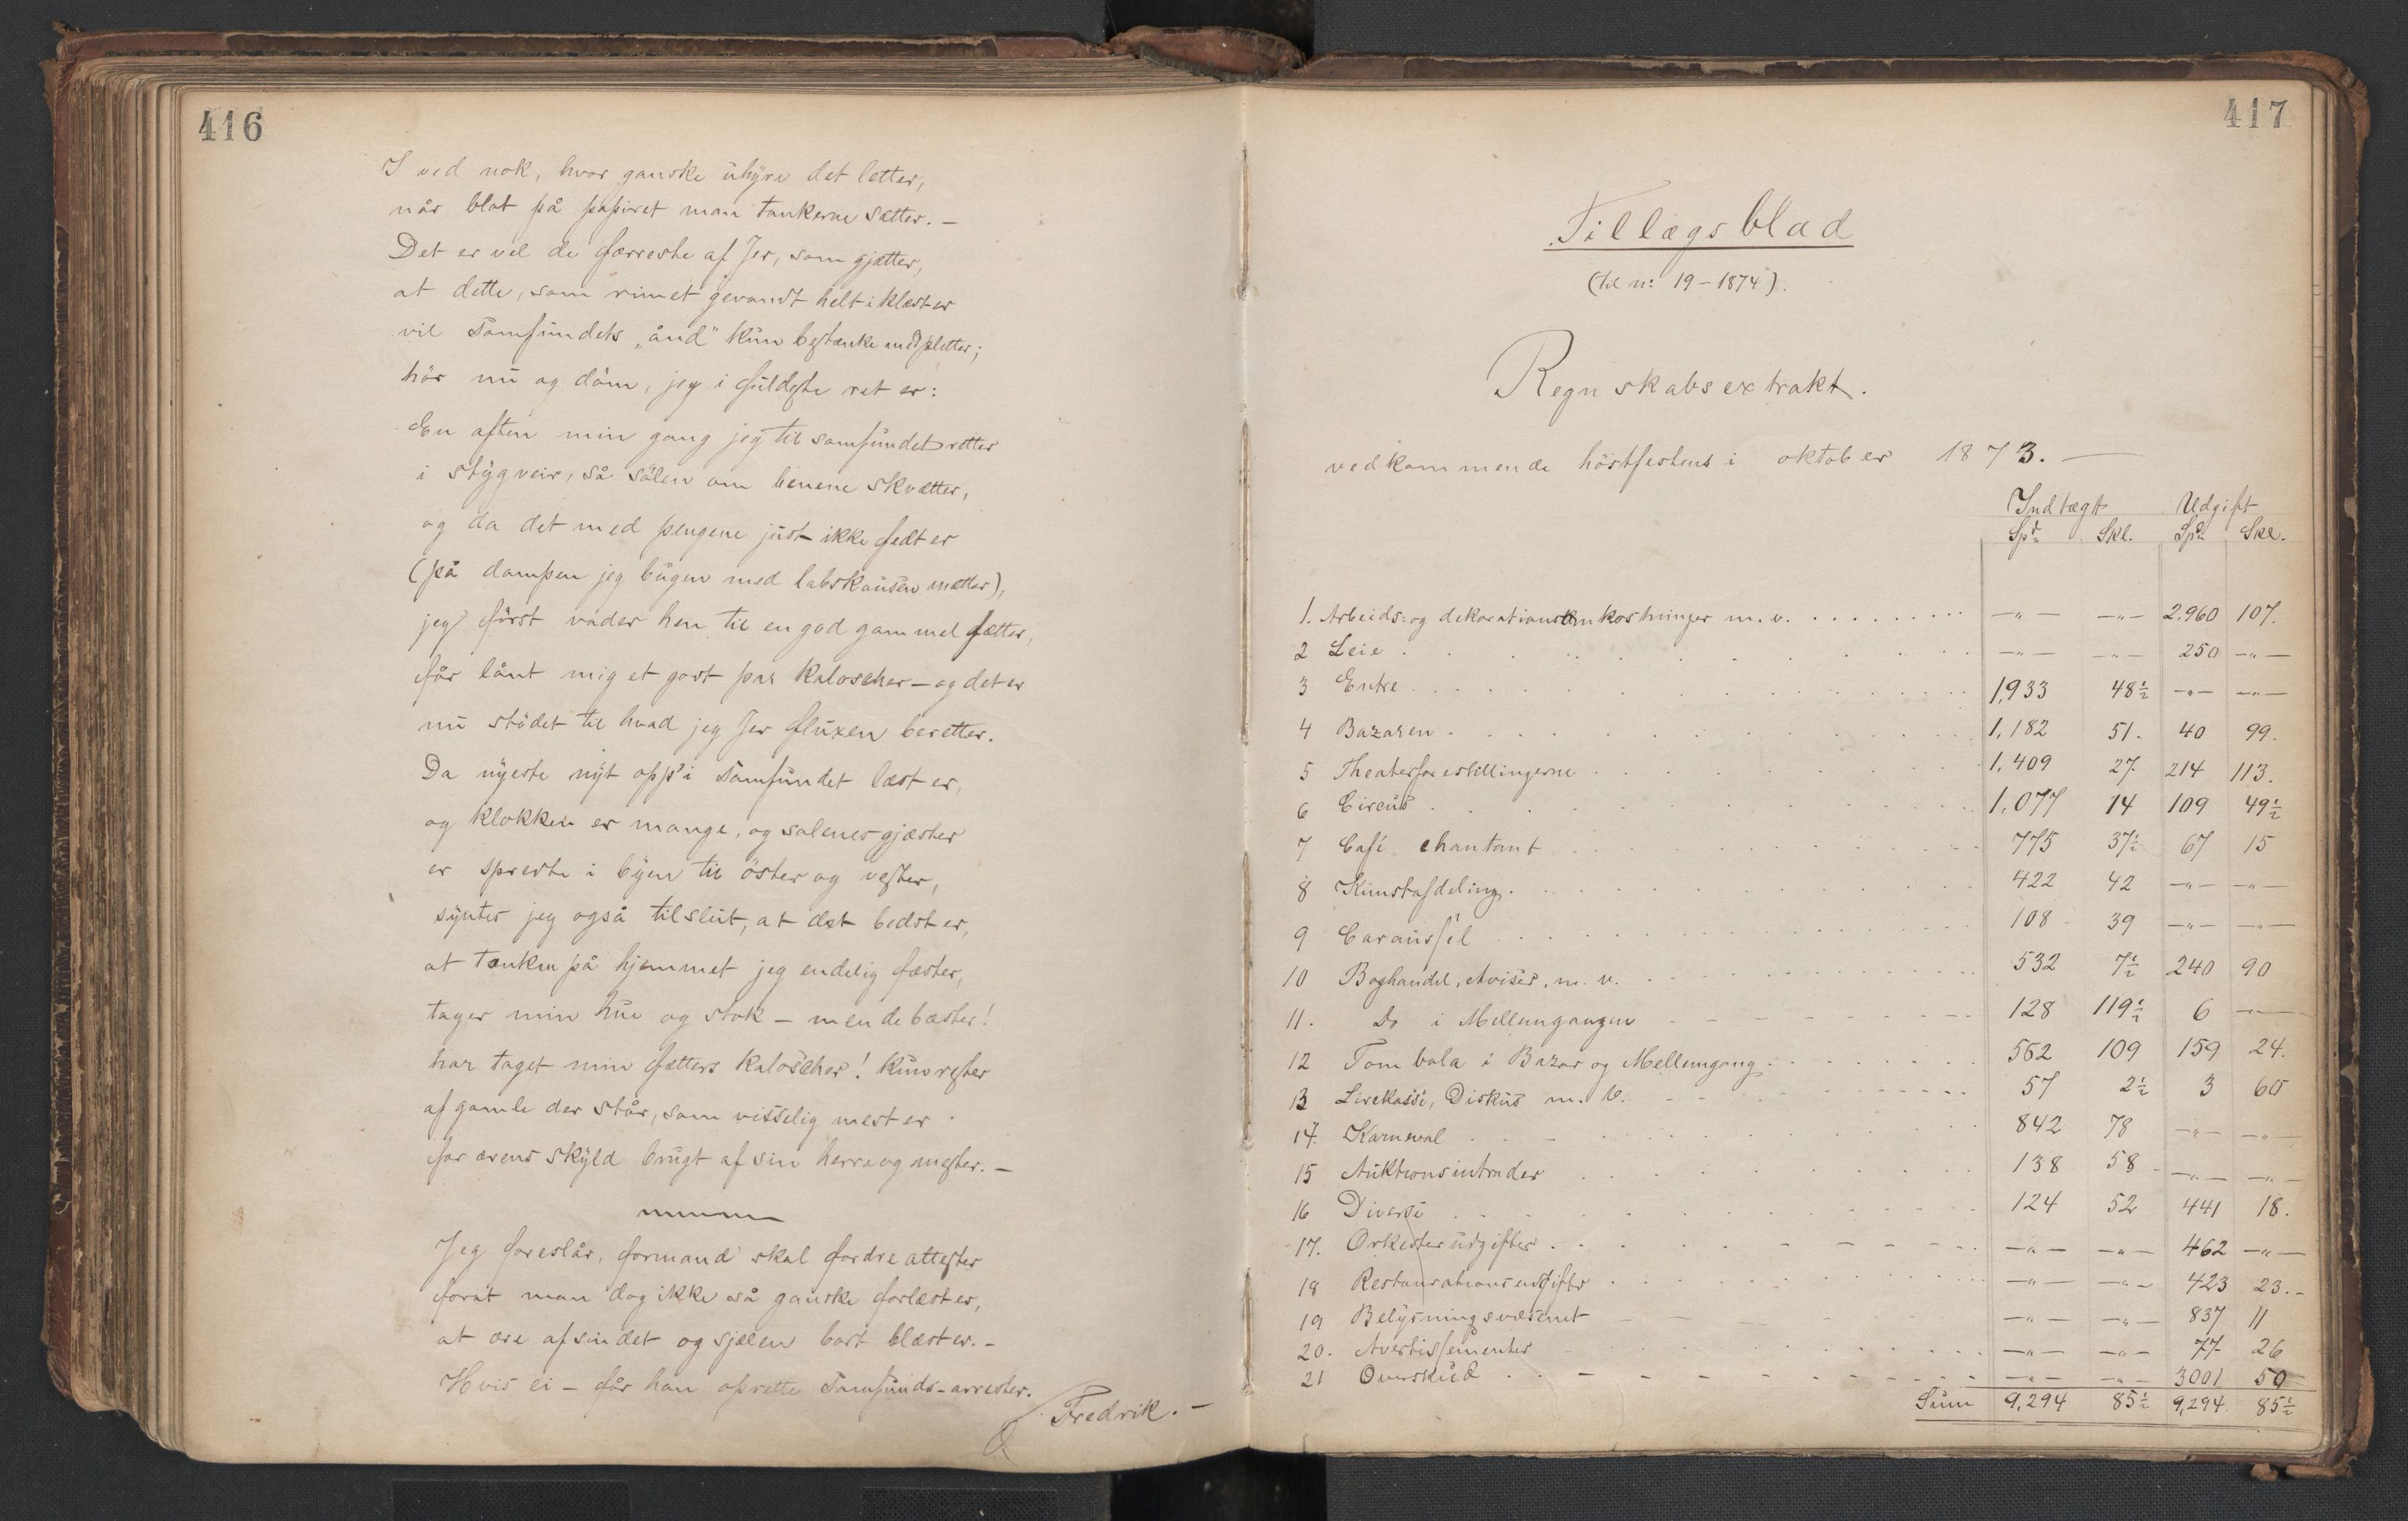 416
I ved nok, hvor ganske uhyre det letter,
når blot på papiret man tankerne sætter. —
Det er vel de færreste af Jer, som gjætter,
at dette, som rimet gevandt helt iklædt er
vil Samfundets „ånd" kun bestænke med pletter;
hör nu og döm, jeg i fuldeste ret er:
En aften min gang jeg til samfundet retter
i stygveir, så sölen om benene skvætter,
og da det med pengene just ikke fedt er
(på dampen jeg bugen med labskausen mætter),
jeg först vader hen til en god gammel fætter,
får lånt mig et godt par kaloscher — og det er
nu stödet til hvad jeg Jer fluxen beretter.
Da nyeste nyt opp' i Samfundet læst er,
og klokken er mange, og salenes gjæster
er spredte i byen til öster og vester,
syntes jeg også tilslut, at det bedst er,
at tanken på hjemmet jeg endelig fæster,
tager min hue og stok — men de bæster!
har taget min fætters kaloscher! Kun rester
af gamle der står, som visselig mest er
for ærens skyld brugt af sin herre og mester. —
Jeg foreslår, formand skal fordre attester
forat man dog ikke så ganske forlæst er,
at ære af sindet og sjælen bort blæst er. —
Hvis ei — får han oprette Samfunds-arrester.
Fredrik. —
417
Tillægsblad
(til no 19 – 1874).
Regnskabsextrakt.
vedkommende höstfesten i oktober 1873. —
Indtægt Udgift
Spd. Skl. Spd. Skl.
1. Arbeids- og dekorationsomkostninger m. v. —"— —"— 2.960 107.
2 Leie —"— —"— 250 —"—
3 Entre 1,933 48½ —"— —"—
4 Bazaren 1,182 51. 40 99.
5 Theaterforestillingerne 1,409 27 214 113.
6 Circus 1,077 14 109 49½
7 Café chantant 775 37½ 67 15
8 Kunstafdeling. 422 42 —"— —"—
9 Caroussel 108 39 —"— —"—
10 Boghandel, Aviser, m. v. 532 7½ 240 90
11. Do i Mellemgangen 128 119½ 6 —"—
12 Tombola i Bazar og Mellemgang. 562 109 159 24.
13 Lirekasse, Diskus m. v. 57 2½ 3 60
14. Karneval 842 78 —"— —"—
15 Auktionsintrader 138 58 —"— —"—
16 Diverse 124 52 441 18.
17. Orkesterudgifter —"— —"— 462 —"—
18 Restaurationsudgifter —"— —"— 423 23. -
19 Belysningsvæsenet —"— —"— 837 11
20. Avertissementer —"— —"— 77 26
21 Overskud —"— —"— 3001 50
Sum 9,294 85½ 9,294 85½